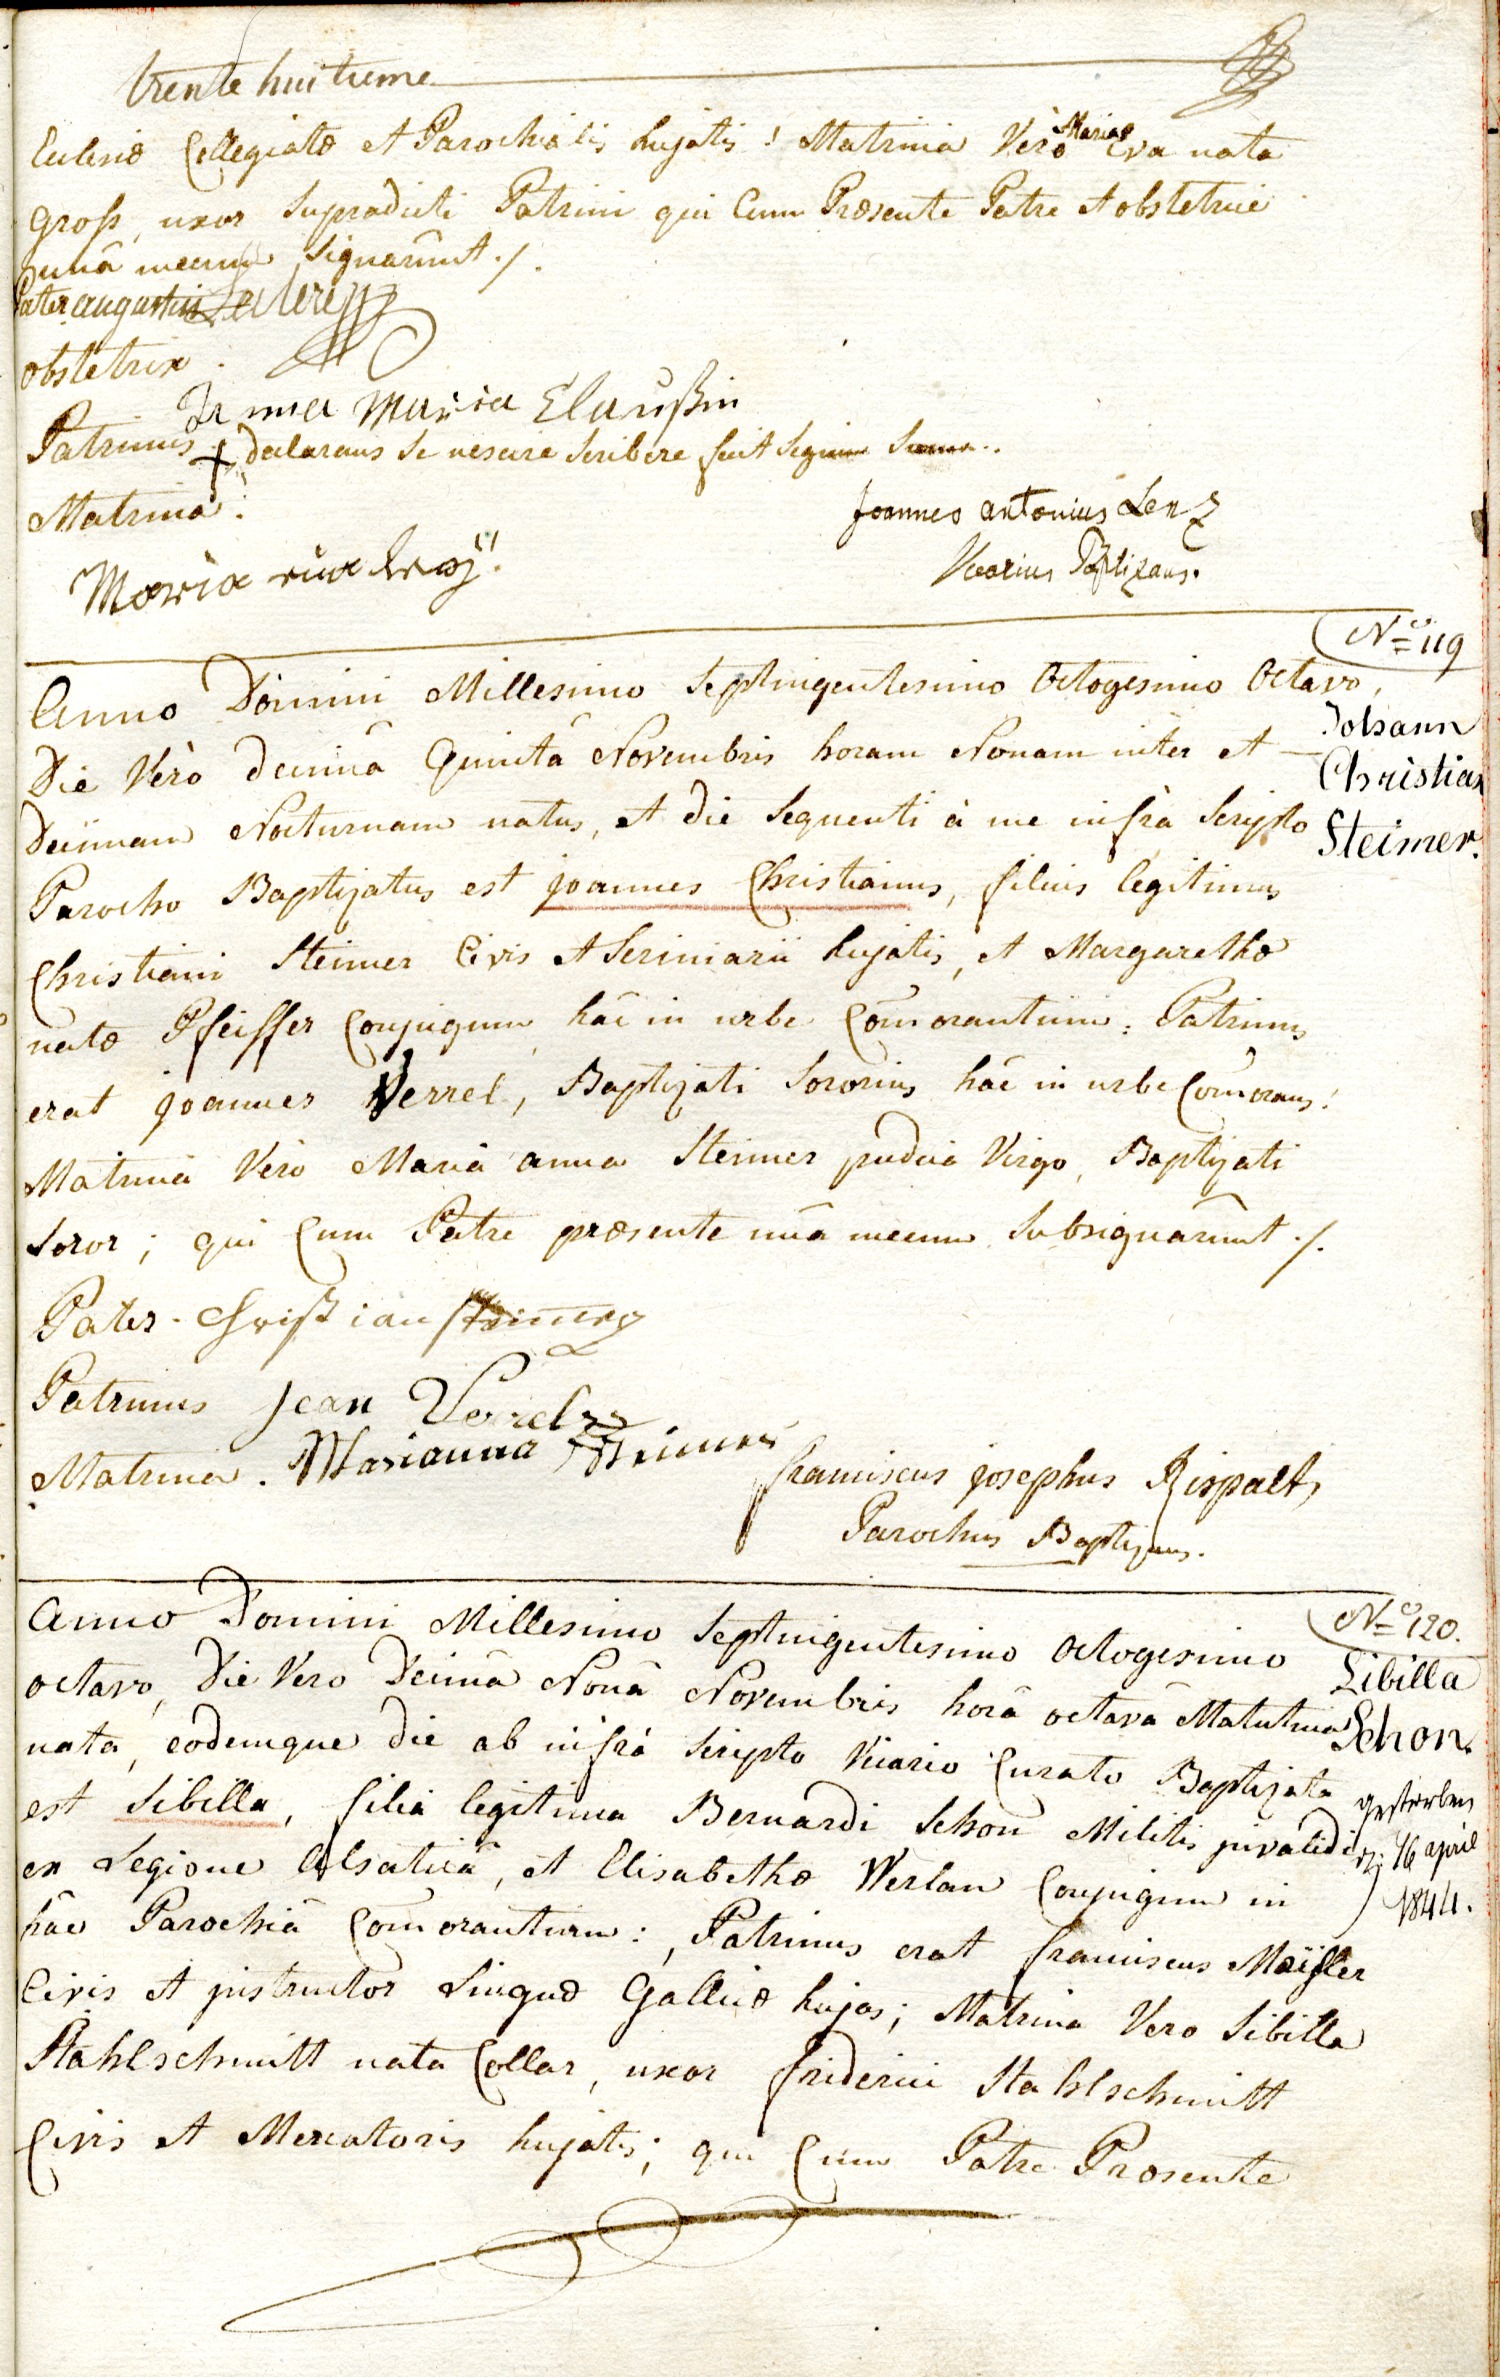 trente huitieme
Eclesiæ Collegiatæ et Parochialis hujatis! Matrina Verò Mariæ Eva nata
Groß, uxor supradicti Patrini qui Cum Præsente Patre et obstetrice
unâ mecum signarûnt ./.
Pater augustin
obstetrix .
Anna Maria Claußin
Patrinus + declarans se nescire scribere fecit signum suum.
Matrina:
Joannes antonius Lenz
Maria eva
Vicarius Baptizans.
No 119
Anno Domini Millesimo septingentesimo Octogesimo Octavo,
Johann
Die Verò decimâ Quintâ Novembris horam Nonam inter et —
Christian
Decimam Nocturnam natus, et die sequenti à me infrà scripto
Steimer.
Parocho Baptizatus est joannes Christianus, filius legitimus
Christiani Steimer Civis et Scriniarii hujatis, et Margarethæ
natæ Pfeiffer Conjugum hâc in urbe Com̄orantium: Patrinus
erat joannes Verrel, Baptizati Sororius hâc in urbe Com̄orans!
Matrina Verò Maria anna Steimer pudica Virgo, Baptizati
Soror; qui Cum Patre præsente unâ mecum Subsignarûnt ./.
Pater. Christian Steimer
Patrinus Jean Verrel
Matrina. Marianna Steimer
franciscus josephus Rispalt,
Parochus Baptizans.
No 120.
Anno Domini Millesimo Septingentesimo octogesimo
Sibilla
octavo, Die Vero Decimâ Nonâ Novembris horâ octavâ Matutina
Schon.
nata, eodemque die ab infrà scripto Vicario Curato Baptizata
gestorben
est Sibilla, filia legitima Bernardi Schon Militis invalidi
16 april
ex Legione Alsaticâ, et Elisabethæ Werlan Conjugum in
1844.
hâc Parochiâ Com̄orantium:, Patrinus erat franciscus Meÿster
Civis et instructor Linguæ Gallicæ hujas; Matrina Vero Sibilla
Stahlschmitt nata Collar, uxor friderici Stahlschmitt
Civis et Mercatoris hujatis; qui Cum Patre Præsente